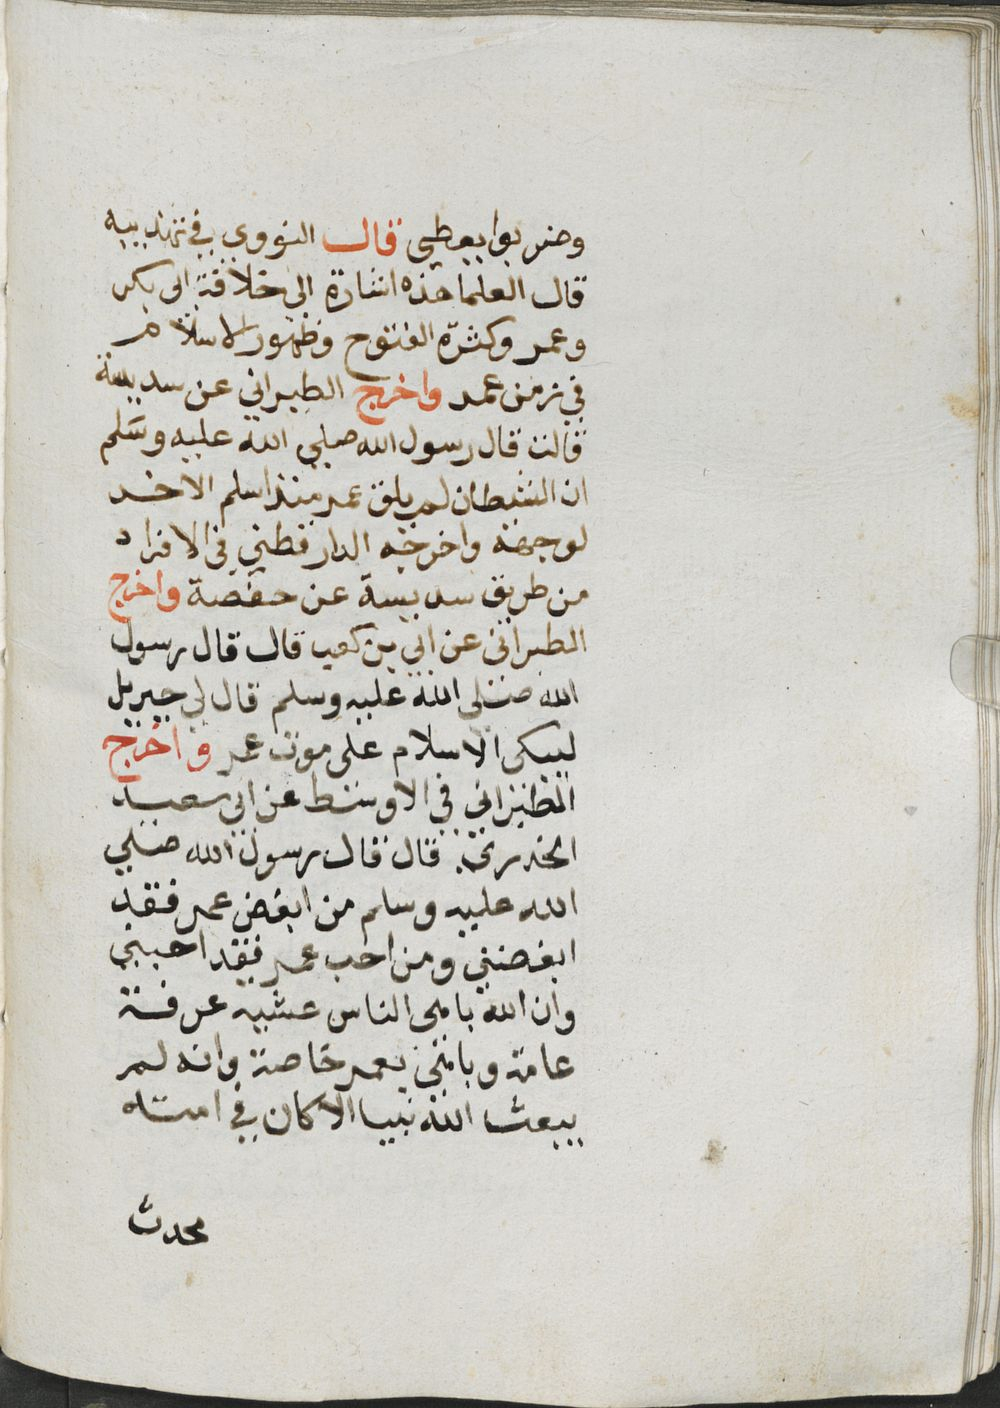 وضربوا بعطن قال النووي في تهذيبه
قال العلما هذه اشارة الى خلافة ابى بكر
وعمر وكثرة الفتوح وظهور الاسلام
في زمن عمر واخرج الطبراني عن سديسة
قالت قال رسول الله صلي الله عليه وسلم
ان الشيطان لم يلق عمر منذ اسلم الا خر
لوجهه واخرجه الدارقطني في الافراد
من طريق سديسة عن حفصة واخرج
الطبرانى عن ابي بن كعب قال قال رسول
الله صلى الله عليه وسلم قال لي جبريل
ليبكى الاسلام على موت عمر واخرج
الطبراني في الاوسط عن ابي سعيد
الخدري قال قال رسول الله صلي
الله عليه وسلم من ابغض عمر فقد
ابغضني ومن احب عمر فقد احبني
وان الله باهى الناس عشيه عرفة
عامة وباهى بعمر خاصة وانه لم
يبعث الله نبيا الا كان في امته
محدث